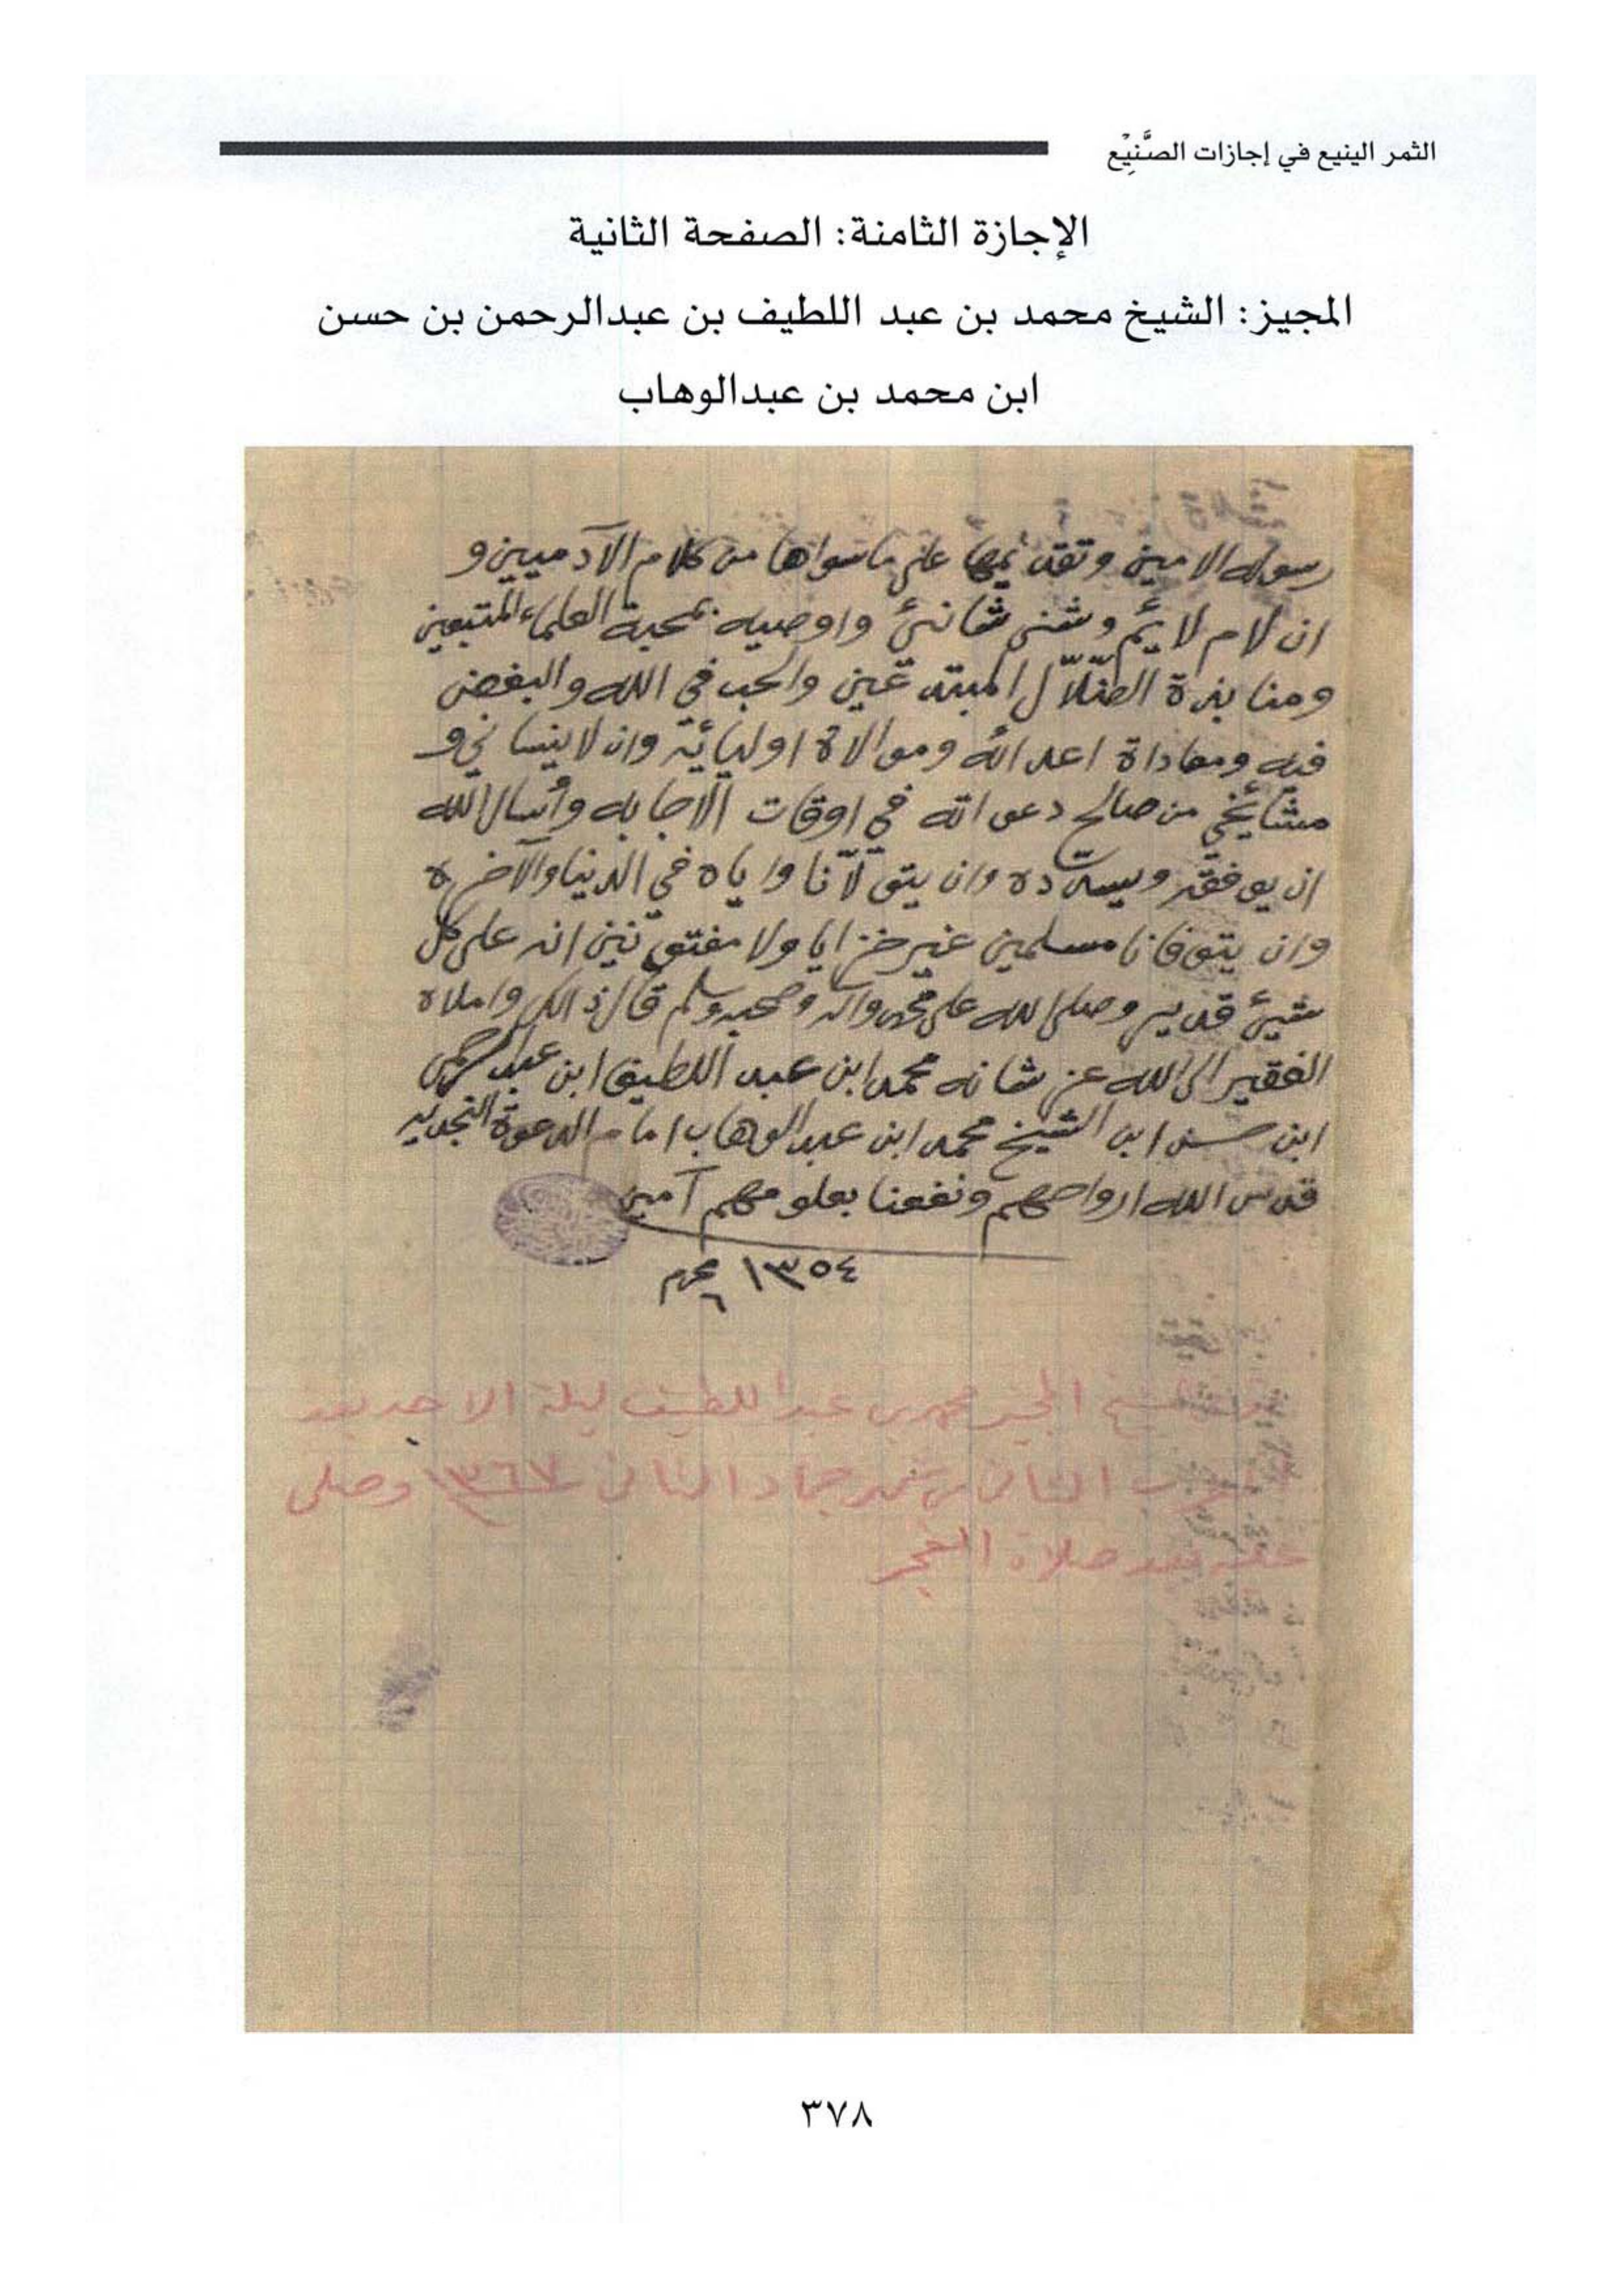 الثمر الينيع في إجازات الصَّنِيْع
الإجازة الثامنة: الصفحة الثانية
المجيز: الشيخ محمد بن عبد اللطيف بن عبدالرحمن بن حسن
ابن محمد بن عبدالوهاب
رسوله الامين وتقديمها على ماسواها من كلام الآدميين و
ان لام لايم وشنى شانئ واوصيه بمحبة العلماء المتبعين
ومنابذة الضلّال المبتدعين والحب في الله والبغض
فيه ومعاداة اعدائه وموالاة اوليائه وان لاينساني و
مشائخي من صالح دعواته في اوقات الاجابه وأسال الله
ان يوفقه ويسدده وان يتولّانا واياه في الدنيا والآخره
وان يتوفانا مسلمين غير خزايا ولا مفتونين انه على كل
شيئ قدير وصلى الله على محمد واله وصحبه وسلم قال ذالك واملاه
الفقير الى الله عز شانه محمد ابن عبد اللطيف ابن عبد الرحمن
ابن حسن ابن الشيخ محمد ابن عبد الوهاب امام الدعوة النجديه
قدس الله ارواحهم ونفعنا بعلومهم آمين
١٣٥٤ محرم ٦
الشيخ المجيز محمد بن عبد اللطيف ليلة الاحد بعد
الثاني من شهر جماد الثاني ١٣٦٧ وصلى
عليه بعد صلاة الفجر
٣٧٨